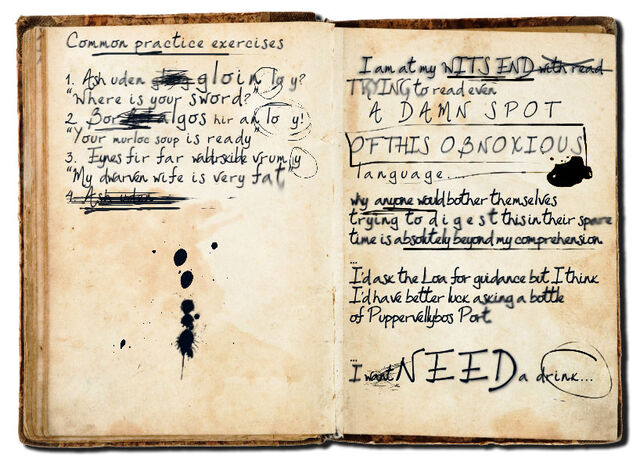 Common practice exercises
1. Ash uden gloin lo y?
"Where is your sword?"
2. Bor algos hir an lo y!
"Your murloc soup is ready"
3. Eynes fir far wadrside vrum y
"My dwarven wife is very fat"
4. Ash uden
I am at my WITS END with read
TRYING to read even
A DAMN SPOT
OF THIS OBNOXIOUS
language.
why anyone would bother themselves
trying to digest this in their spare
time is absolutely beyond my comprehension.
...
I'd ask the Loa for guidance but I think
I'd have better luck asking a bottle
of Puppervellybos Port
...
I want NEED a drink...